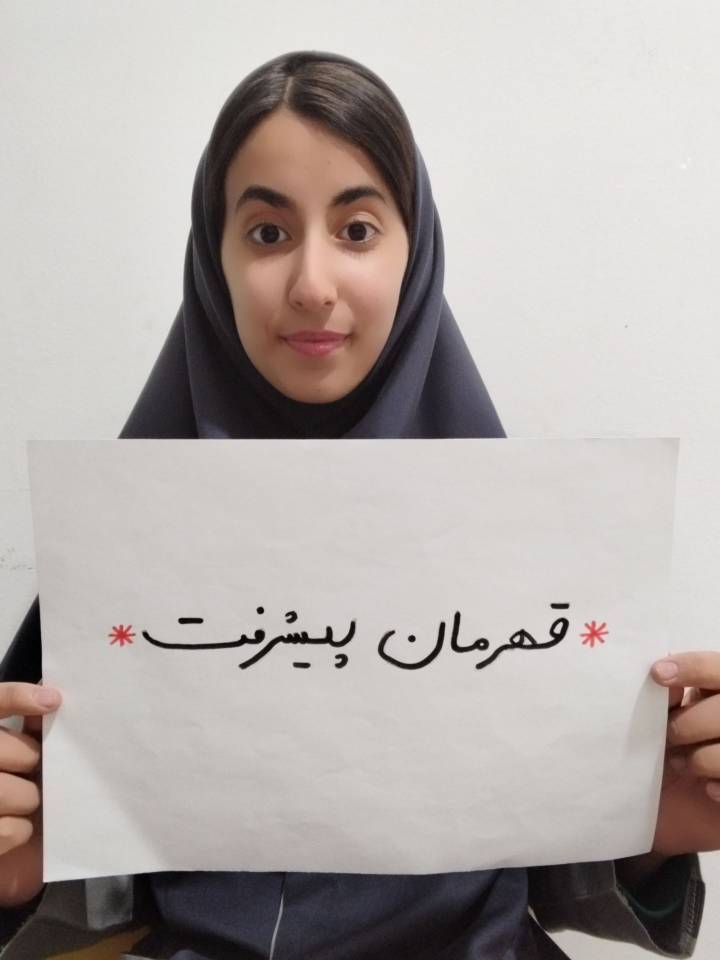 * قهرمان پیشرفت *